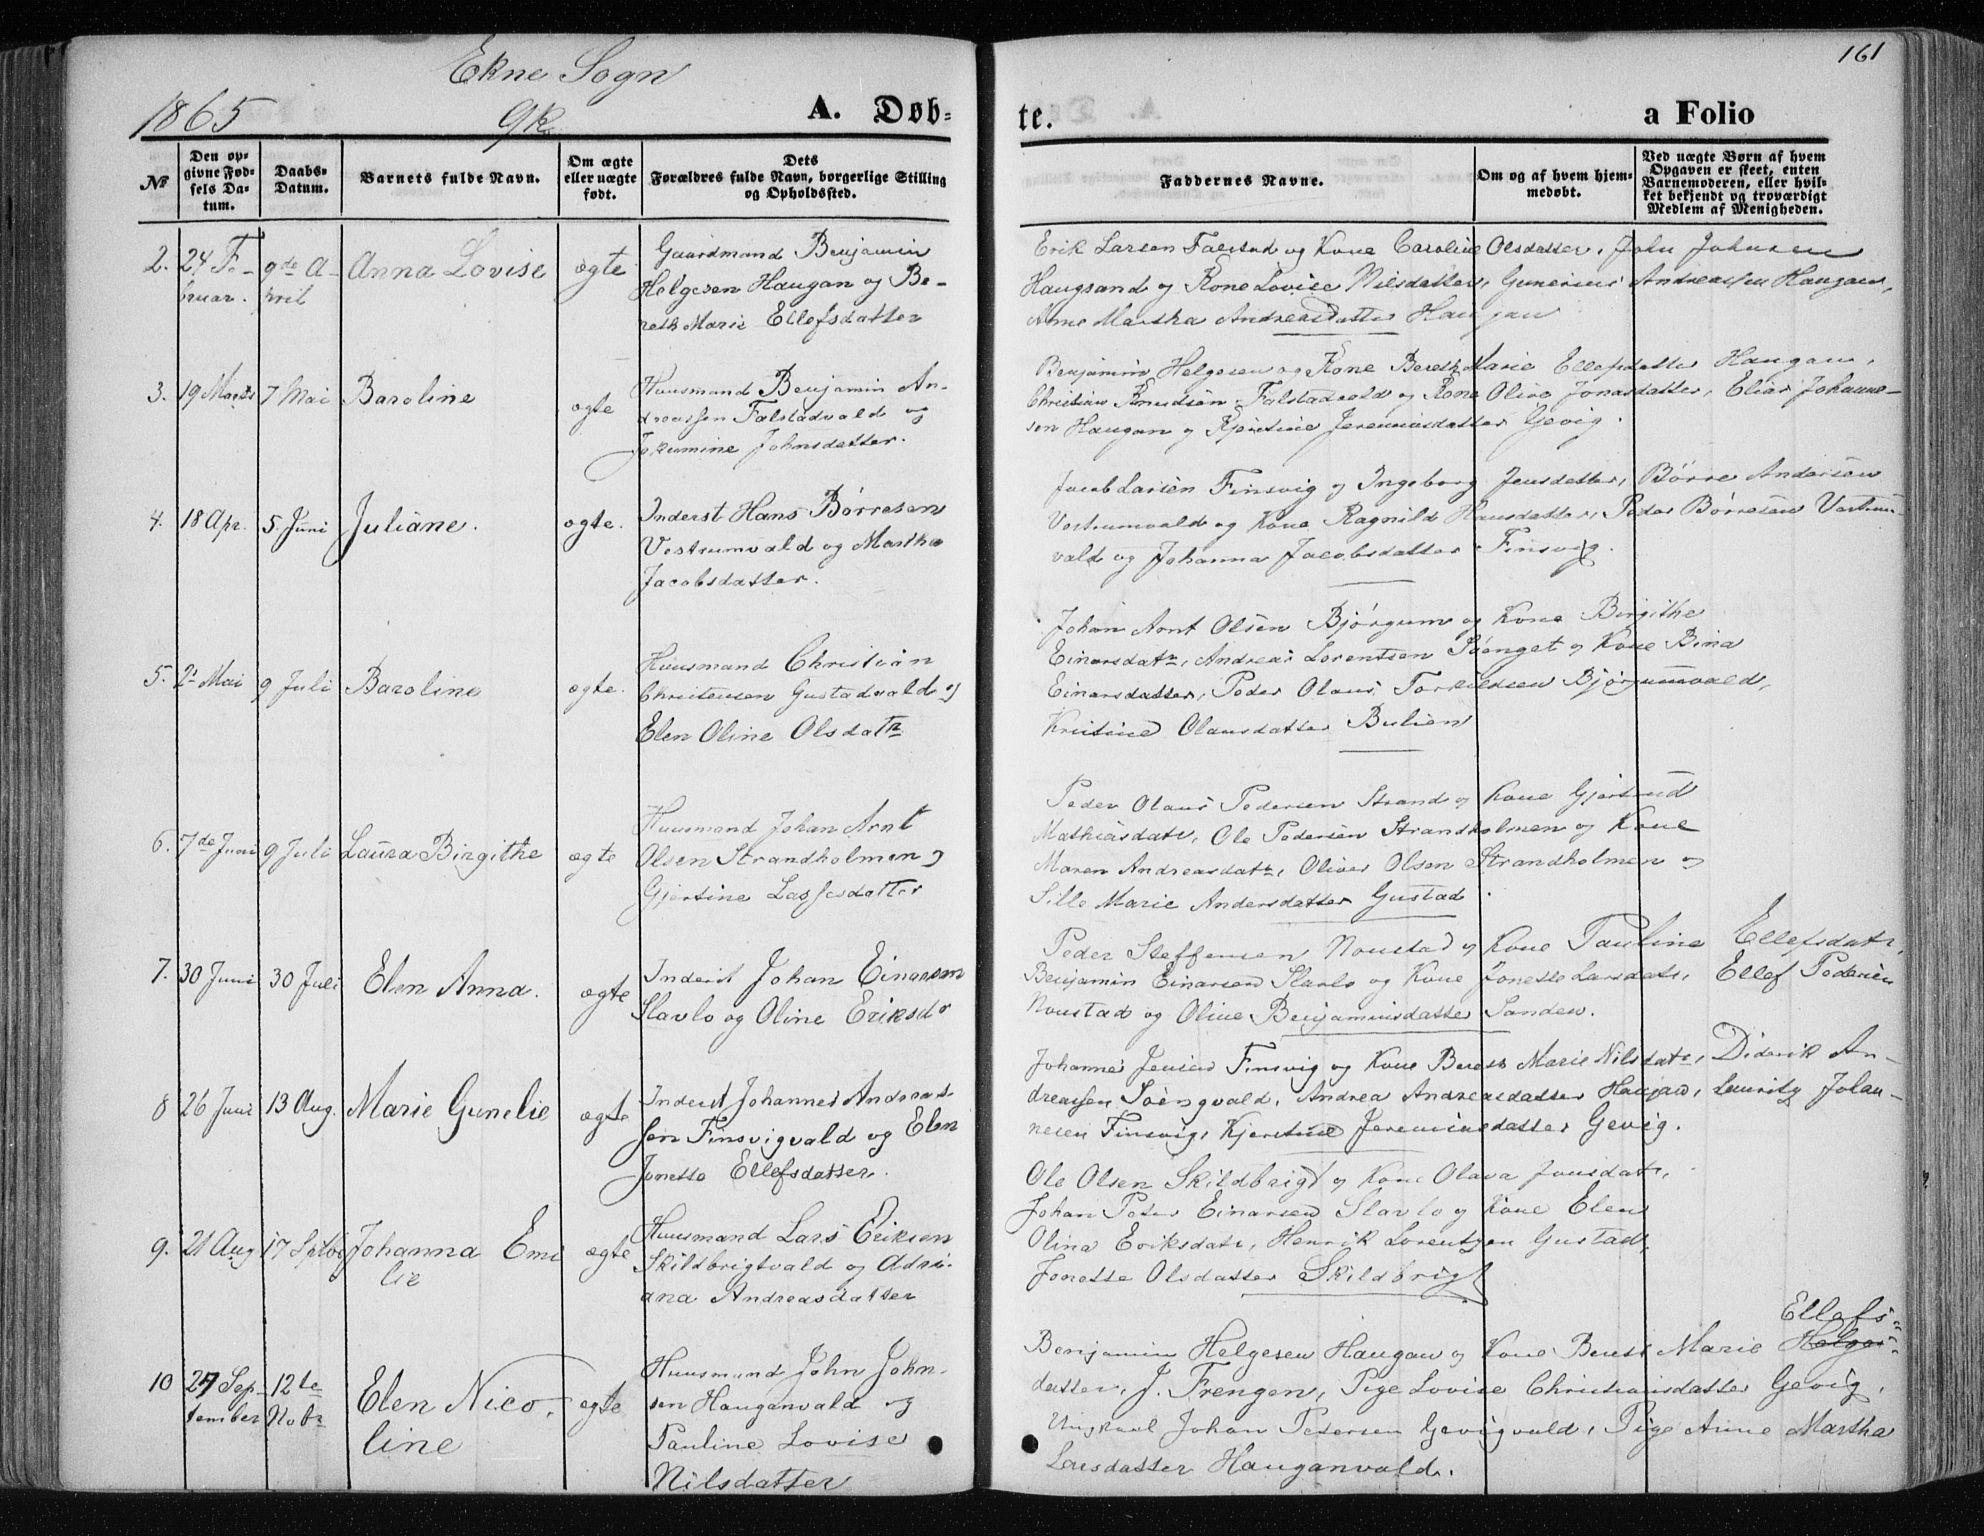 Ekne Sogn
161
1865
A. Døb-
te.
a Folio
№
Den op-
givne Fød-
sels Da-
tum.
Daabs-
Datum.
Barnets fulde Navn.
Om ægte
eller uægte
født.
Dets
Forældres fulde Navn, borgerlige Stilling
og Opholdssted.
Faddernes Navne.
Om og af hvem hjem-
medøbt.
Ved uægte Børn af hvem
Opgaven er skeet, enten
Barnemoderen, eller hvil-
ket bekjendt og troværdigt
Medlem af Menigheden.
2. 24 Fe-
bruar.
9de A-
pril
Anna Lovise
ægte
Gaardmand Benjamin
Helgesen Haugan og Be-
reth Marie Ellefsdatter
Erik Larsen Falstad og Kone Caroline Olsdatter, John Johnsen
Haugsand og Kone Lovise Nilsdatter, Gunerius Andreassen Haugan,
Anne Martha Andreasdatter Haugan
3. 19 Marts
7 Mai
Baroline
ægte
Huusmand Benjamin An-
dreassen Falstadvald og
Jokumine Johnsdatter.
Benjamin Helgesen og Kone Bereth Marie Ellefsdatter Haugan,
Christian Knudsen Falstadvald og Kone Oline Jonasdatter, Elias Johanne-
sen Haugan og Kjerstine Jeremiasdatter Gevig.
4. 18 Apr.
5. Juni
Juliane.
ægte.
Inderst Hans Børresen
Vestrumvald og Martha
Jacobsdatter.
Jacob Larsen Finsvig og Ingeborg Jensdatter, Børre Andersen
Vestrumvald og Kone Ragnild Hansdatter, Peder Børresen Vestrum-
vald og Johanna Jacobsdatter Finsvig.
5. 21 Mai
9 Juli
Baroline
ægte.
Huusmand Christian
Christensen Gustadvald og
Elen Oline Olsdatr
Johan Arnt Olsen Bjørgum og Kone Birgithe
Einarsdatr, Andreas Lorentsen Sønget og Kone Bina
Einarsdatter, Peder Olaus Torkildsen Bjørgumvald,
Kristine Olausdatter Bulien
6. 7de Juni
9 Juli
Laura Birgithe
ægte
Huusmand Johan Arnt
Olsen Strandholmen og
Gjertine Lassesdatter
Peder Olaus Pedersen Strand og Kone Gjertrud
Mathiasdatr, Ole Pedersen Strandholmen og Kone
Maren Andreasdatr, Oliver Olsen Strandholmen og
Sille Marie Andersdatter Gustad.
7. 30 Juni
30 Juli
Elen Anna.
ægte
Inderst Johan Einarsen
Slavlo og Oline Eriksdr
Peder Steffensen Noustad og Kone Pauline Ellefsdatr,
Benjamin Einarsen Slavlo og Kone Jonette Larsdatr, Ellef Pedersen
Noustad og Oline Benjaminsdatter Sanden.
8 26 Juni
13 Aug.
Marie Gunelie
ægte
Inderst Johannes Andreas-
sen Finsvigvald og Elen
Jonette Ellefsdatter.
Johannes Jensen Finsvig og Kone Bereth Marie Nilsdatr, Diderik An-
dreassen Soengvald, Andrea Andreasdatter Haugan, Lauritz Johan-
nesen Finsvig, Kjerstine Jeremiasdatter Gevig.
9. 21 Aug
17 Septbr
Johanna Emi
lie
ægte
Huusmand Lars Eriksen
Skildbrigtvald og Adri-
ana Andreasdatter
Ole Olsen Skildbrigt og Kone Olava Jonsdatr,
Johan Peter Einarsen Slavlo og Kone Elen
Olina Eriksdatr, Henrik Lorentzen Gustad,
Jonette Olsdatter Skildbrigt
10 27 Sep-
tember
12te
Nobr
Elen Nico-
line
ægte
Huusmand John John-
sen Hauganvald og
Pauline Lovise
Nilsdatter
Ellefs-
Benjamin Helgesen Haugan og Kone Bereth Marie Helges-
datter, J. Frengen, Pige Lovise Christiansdatter Gevig,
Ungkarl Johan Petersen Gevigvald, Pige Anne Martha
Larsdatter Hauganvald.